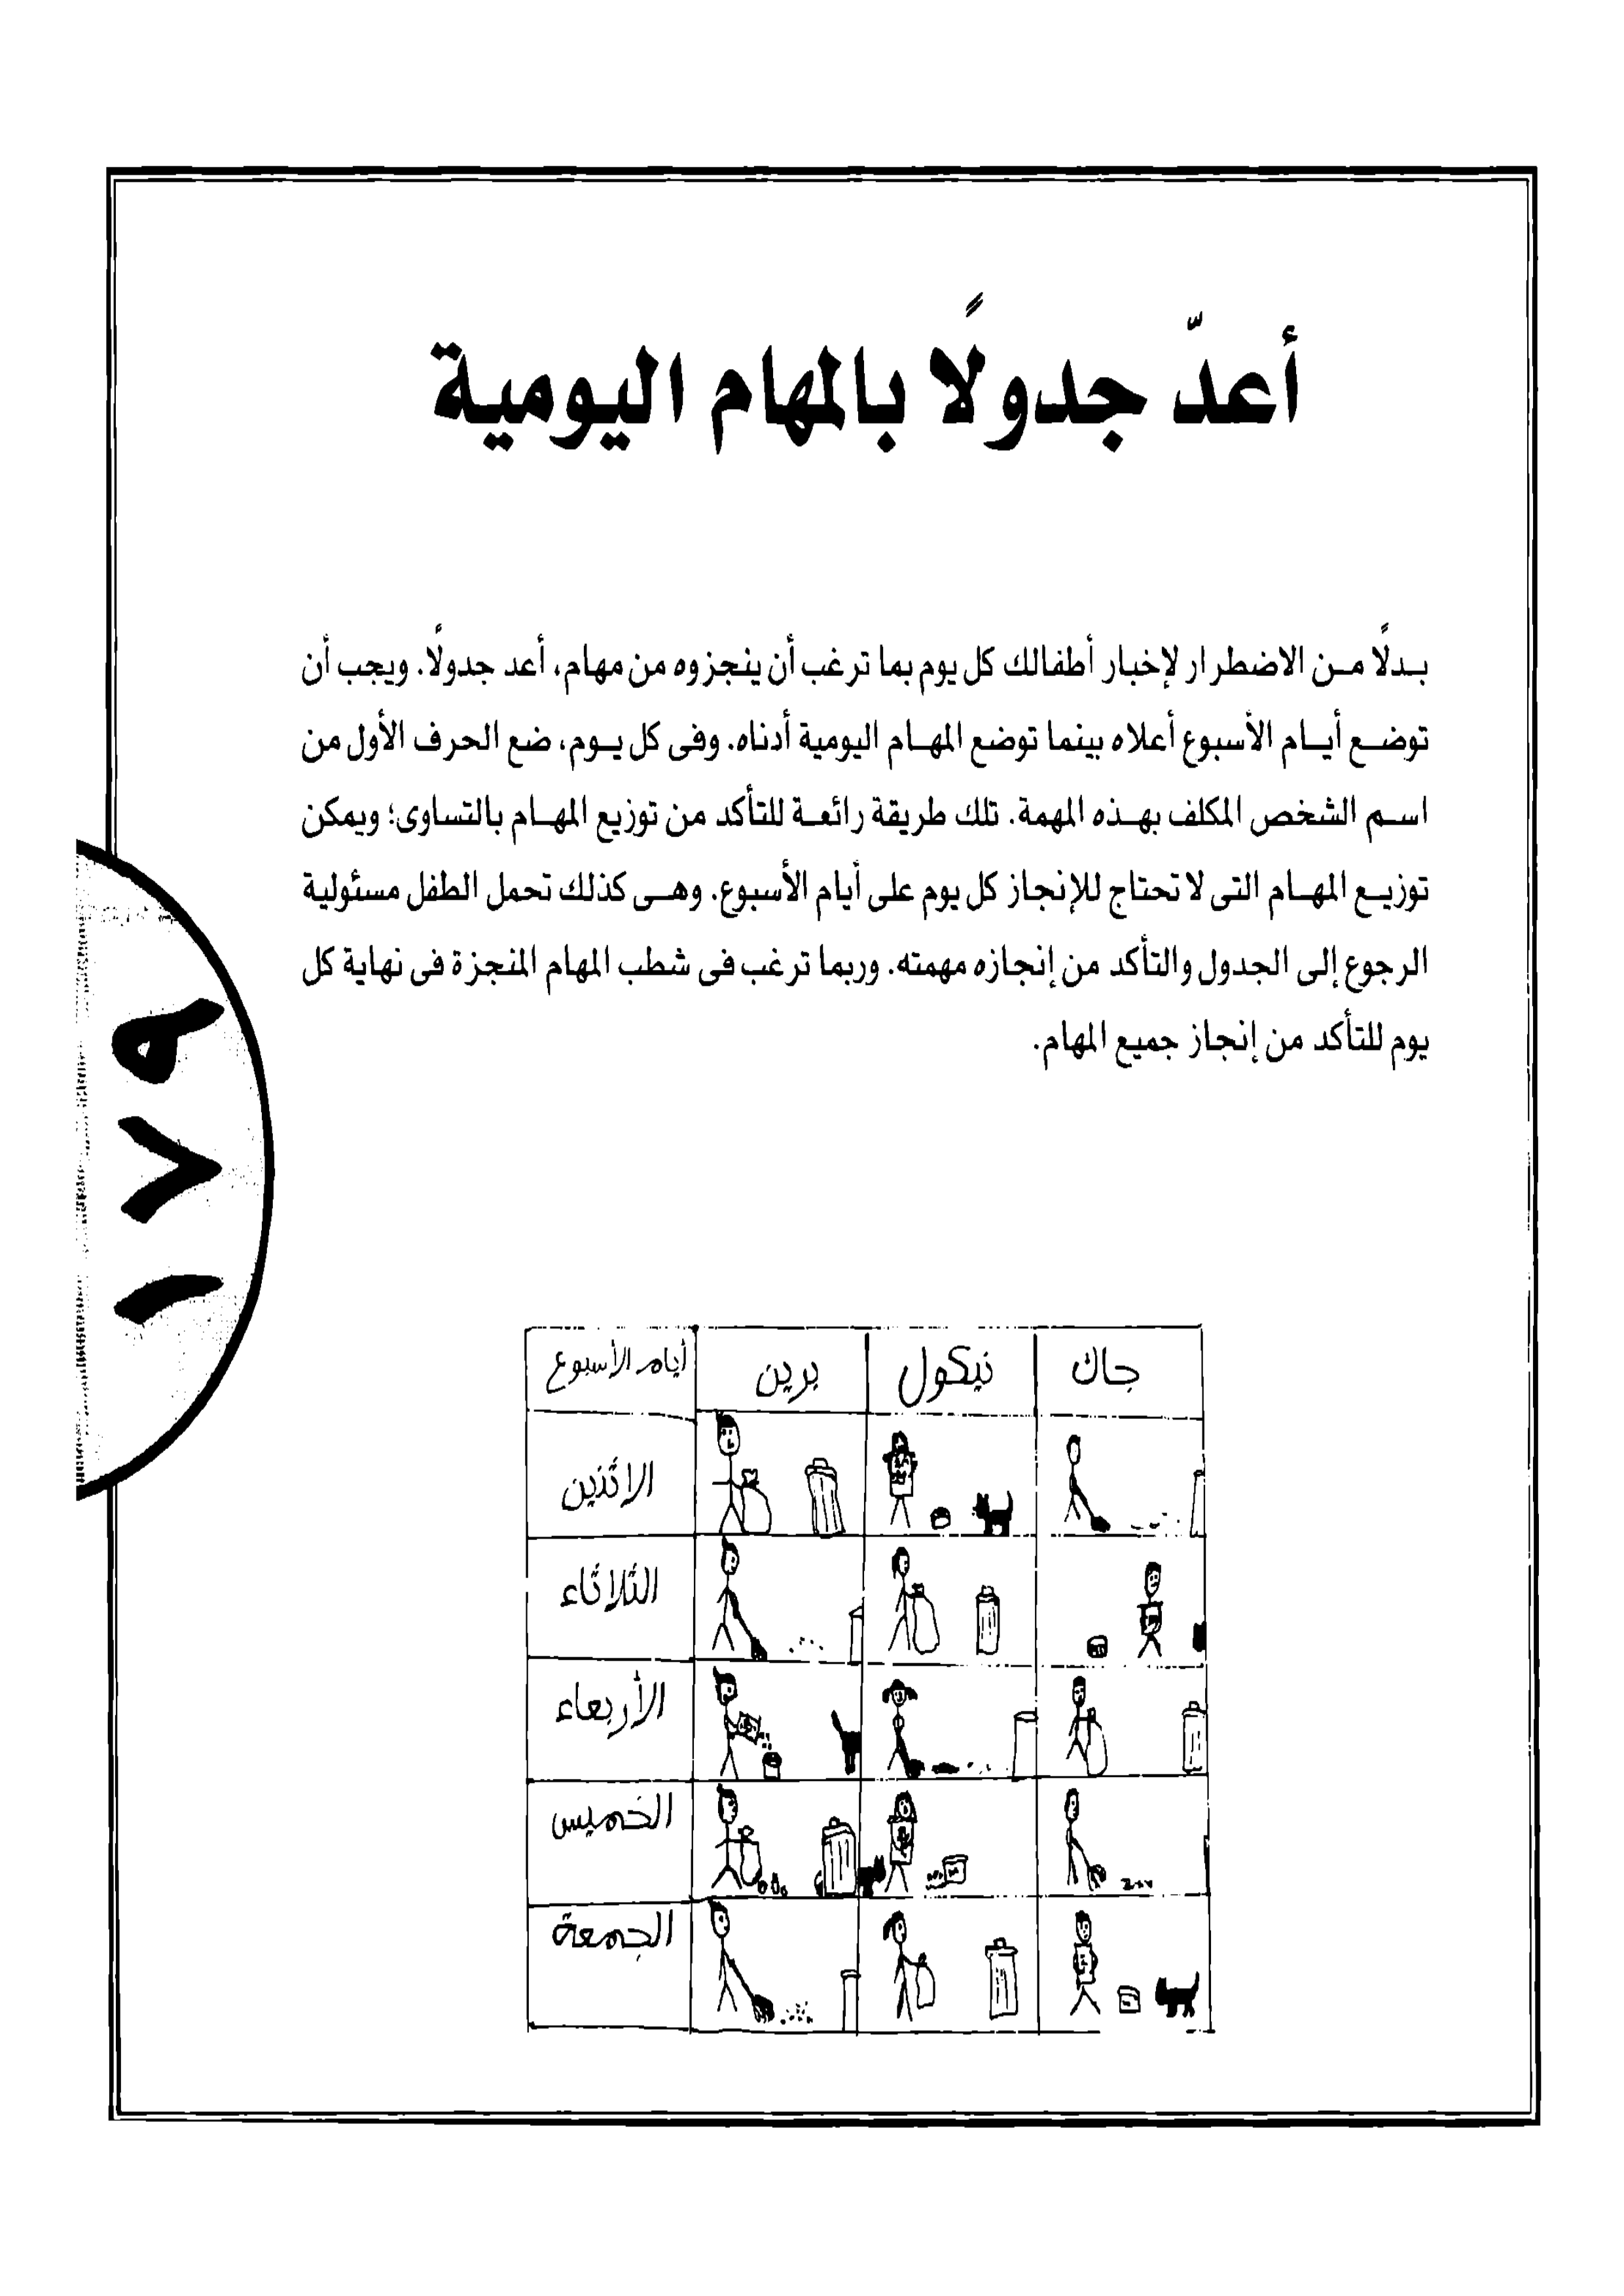 أعدّ جدولًا بالمهام اليومية
بدلًا من الاضطرار لإخبار أطفالك كل يوم بما ترغب أن ينجزوه من مهام، أعد جدولًا. ويجب أن
توضع أيام الأسبوع أعلاه بينما توضع المهام اليومية أدناه. وفى كل يوم، ضع الحرف الأول من
اسم الشخص المكلف بهذه المهمة. تلك طريقة رائعة للتأكد من توزيع المهام بالتساوى؛ ويمكن
توزيع المهام التى لا تحتاج للإنجاز كل يوم على أيام الأسبوع. وهى كذلك تحمل الطفل مسئولية
الرجوع إلى الجدول والتأكد من إنجازه مهمته. وربما ترغب فى شطب المهام المنجزة فى نهاية كل
يوم للتأكد من إنجاز جميع المهام.
١٧٩
جاك نيكول برين أيام الأسبوع
الاثنين
الثلاثاء
الأربعاء
الخميس
الجمعة